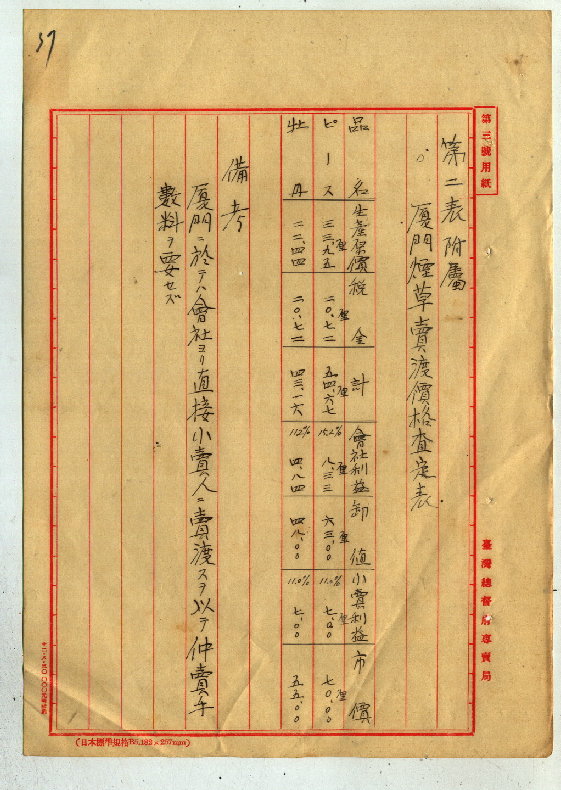 37
第三號用紙
第二表附屬
厦門煙草賣渡價格査定表
品名 生産原價 税金 計 會社利益 卸値 小賣利益 市價
ピース 三三、九五厘 二〇、七二厘 五四、六七厘 15.2% 八、三三厘 六三、〇〇厘 11.0% 七、〇〇厘 七〇、〇〇厘
牡丹 二二、四四 二〇、七二 四三、一六 11.2% 四、八四 四八、〇〇 11.0% 七、〇〇 五五、〇〇
備考
厦門ニ於テハ會社ヨリ直接小賣人ニ賣渡スヲ以テ仲賣手
數料ヲ要セズ
臺灣總督府專賣局
(日本標準規格B5.182×257mm)